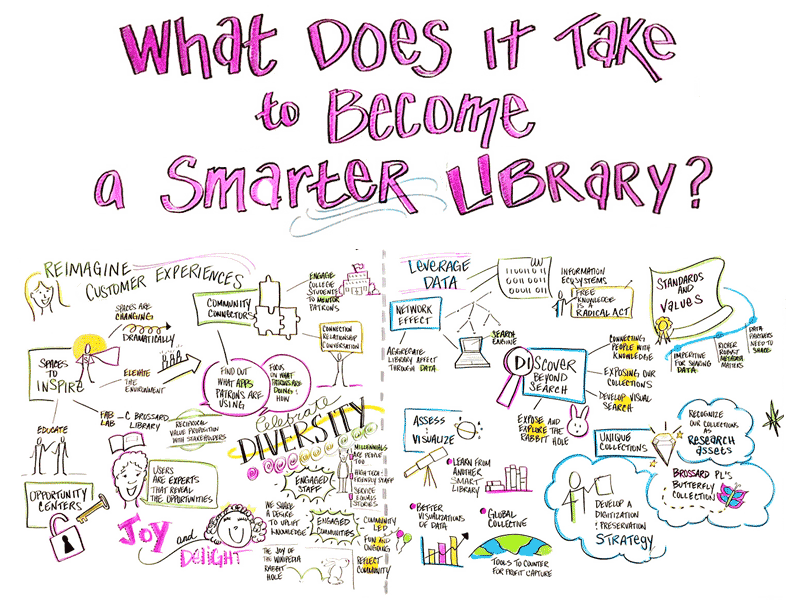 WHAT DOES IT TAKE
to BECOME
a SMARTER LIBRARY?
REIMAGINE
CUSTOMER EXPERIENCES
SPACES ARE
CHANGING
DRAMATICALLY
COMMUNITY
CONNECTORS
ENGAGE
COLLEGE
STUDENTS
TO MENTOR
PATRONS
CONNECTION
RELATIONSHIP
CONVERSATION
SPACES
TO
INSPIRE
ELEVATE
THE
ENVIRONMENT
FIND OUT
WHAT APPS
PATRONS ARE
USING
FOCUS
ON WHAT
PATRONS ARE
DOING & HOW
FAB
LAB
- C BROSSARD
LIBRARY
RECIPROCAL
VALUE PROPOSITION
WITH STAKEHOLDERS
EDUCATE
OPPORTUNITY
CENTERS
USERS
ARE EXPERTS
THAT REVEAL
THE OPPORTUNITIES
Celebrate
DIVERSITY
MILLENNIALS
ARE PEOPLE
TOO
HIGH TECH &
FRIENDLY STAFF
SERVICE
EQUALS
STORIES
ENGAGED
STAFF
JOY
and
DELIGHT
WE SHARE
A DESIRE
TO UPLIFT
KNOWLEDGE
ENGAGED
COMMUNITIES
COMMUNITY
LED
FUN AND
ONGOING
REFLECT
COMMUNITY
THE JOY OF
THE WIKIPEDIA
RABBIT
HOLE
LEVERAGE
DATA
NETWORK
EFFECT
AGGREGATE
LIBRARY AFFECT
THROUGH DATA
INFORMATION
ECOSYSTEMS
FREE
KNOWLEDGE
IS A
RADICAL ACT
SEARCH
ENGINE
DISCOVER
BEYOND
SEARCH
CONNECTING
PEOPLE WITH
KNOWLEDGE
EXPOSING OUR
COLLECTIONS
DEVELOP VISUAL
SEARCH
EXPOSE AND
EXPLORE THE
RABBIT HOLE
STANDARDS
AND
VALUES
IMPERATIVE
FOR SHARING
DATA
RICHER
ROBUST
METADATA
MATTERS
DATA
PARTNERS
NEED TO
SHARE
ASSESS
& VISUALIZE
LEARN FROM
ANOTHER
SMART
LIBRARY
BETTER
VISUALIZATIONS
OF DATA
GLOBAL
COLLECTIVE
TOOLS TO COUNTER
FOR PROFIT CAPTURE
UNIQUE
COLLECTIONS
RECOGNIZE
OUR COLLECTIONS
AS
RESEARCH
ASSETS
BROSSARD PL'S
BUTTERFLY
COLLECTION
DEVELOP A
DIGITIZATION
& PRESERVATION
STRATEGY